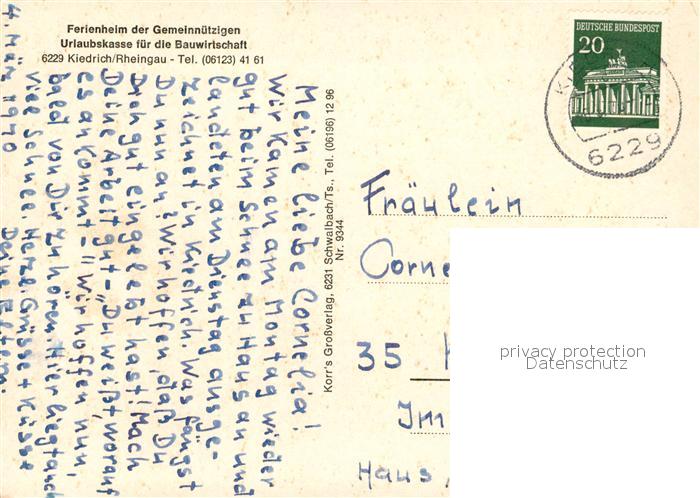 Ferienheim der Gemeinnützigen
Urlaubskasse für die Bauwirtschaft
6229 Kiedrich/Rheingau - Tel. (06123) 41 61
4. März 1970
Meine liebe Cornelia!
Wir kamen am Montag wieder
gut beim Schnee zu Haus an und
landeten am Dienstag ausge-
zeichnet in Kiedrich. Was fängst
Du nun an? Wir hoffen, daß Du
Dich gut eingelebt hast! Mach
Deine Arbeit gut – "Du weißt, worauf
es ankommt – " Wir hoffen nun,
bald von Dir zu hören. Hier liegt auch
viel Schnee. Herzl. Grüsse + Küsse
Deine Eltern.
Korr's Großverlag, 6231 Schwalbach/Ts., Tel. (06196) 12 96
Nr. 9344
DEUTSCHE BUNDESPOST
20
6229
Fräulein
Corne
35
Im
Haus
privacy protection
Datenschutz